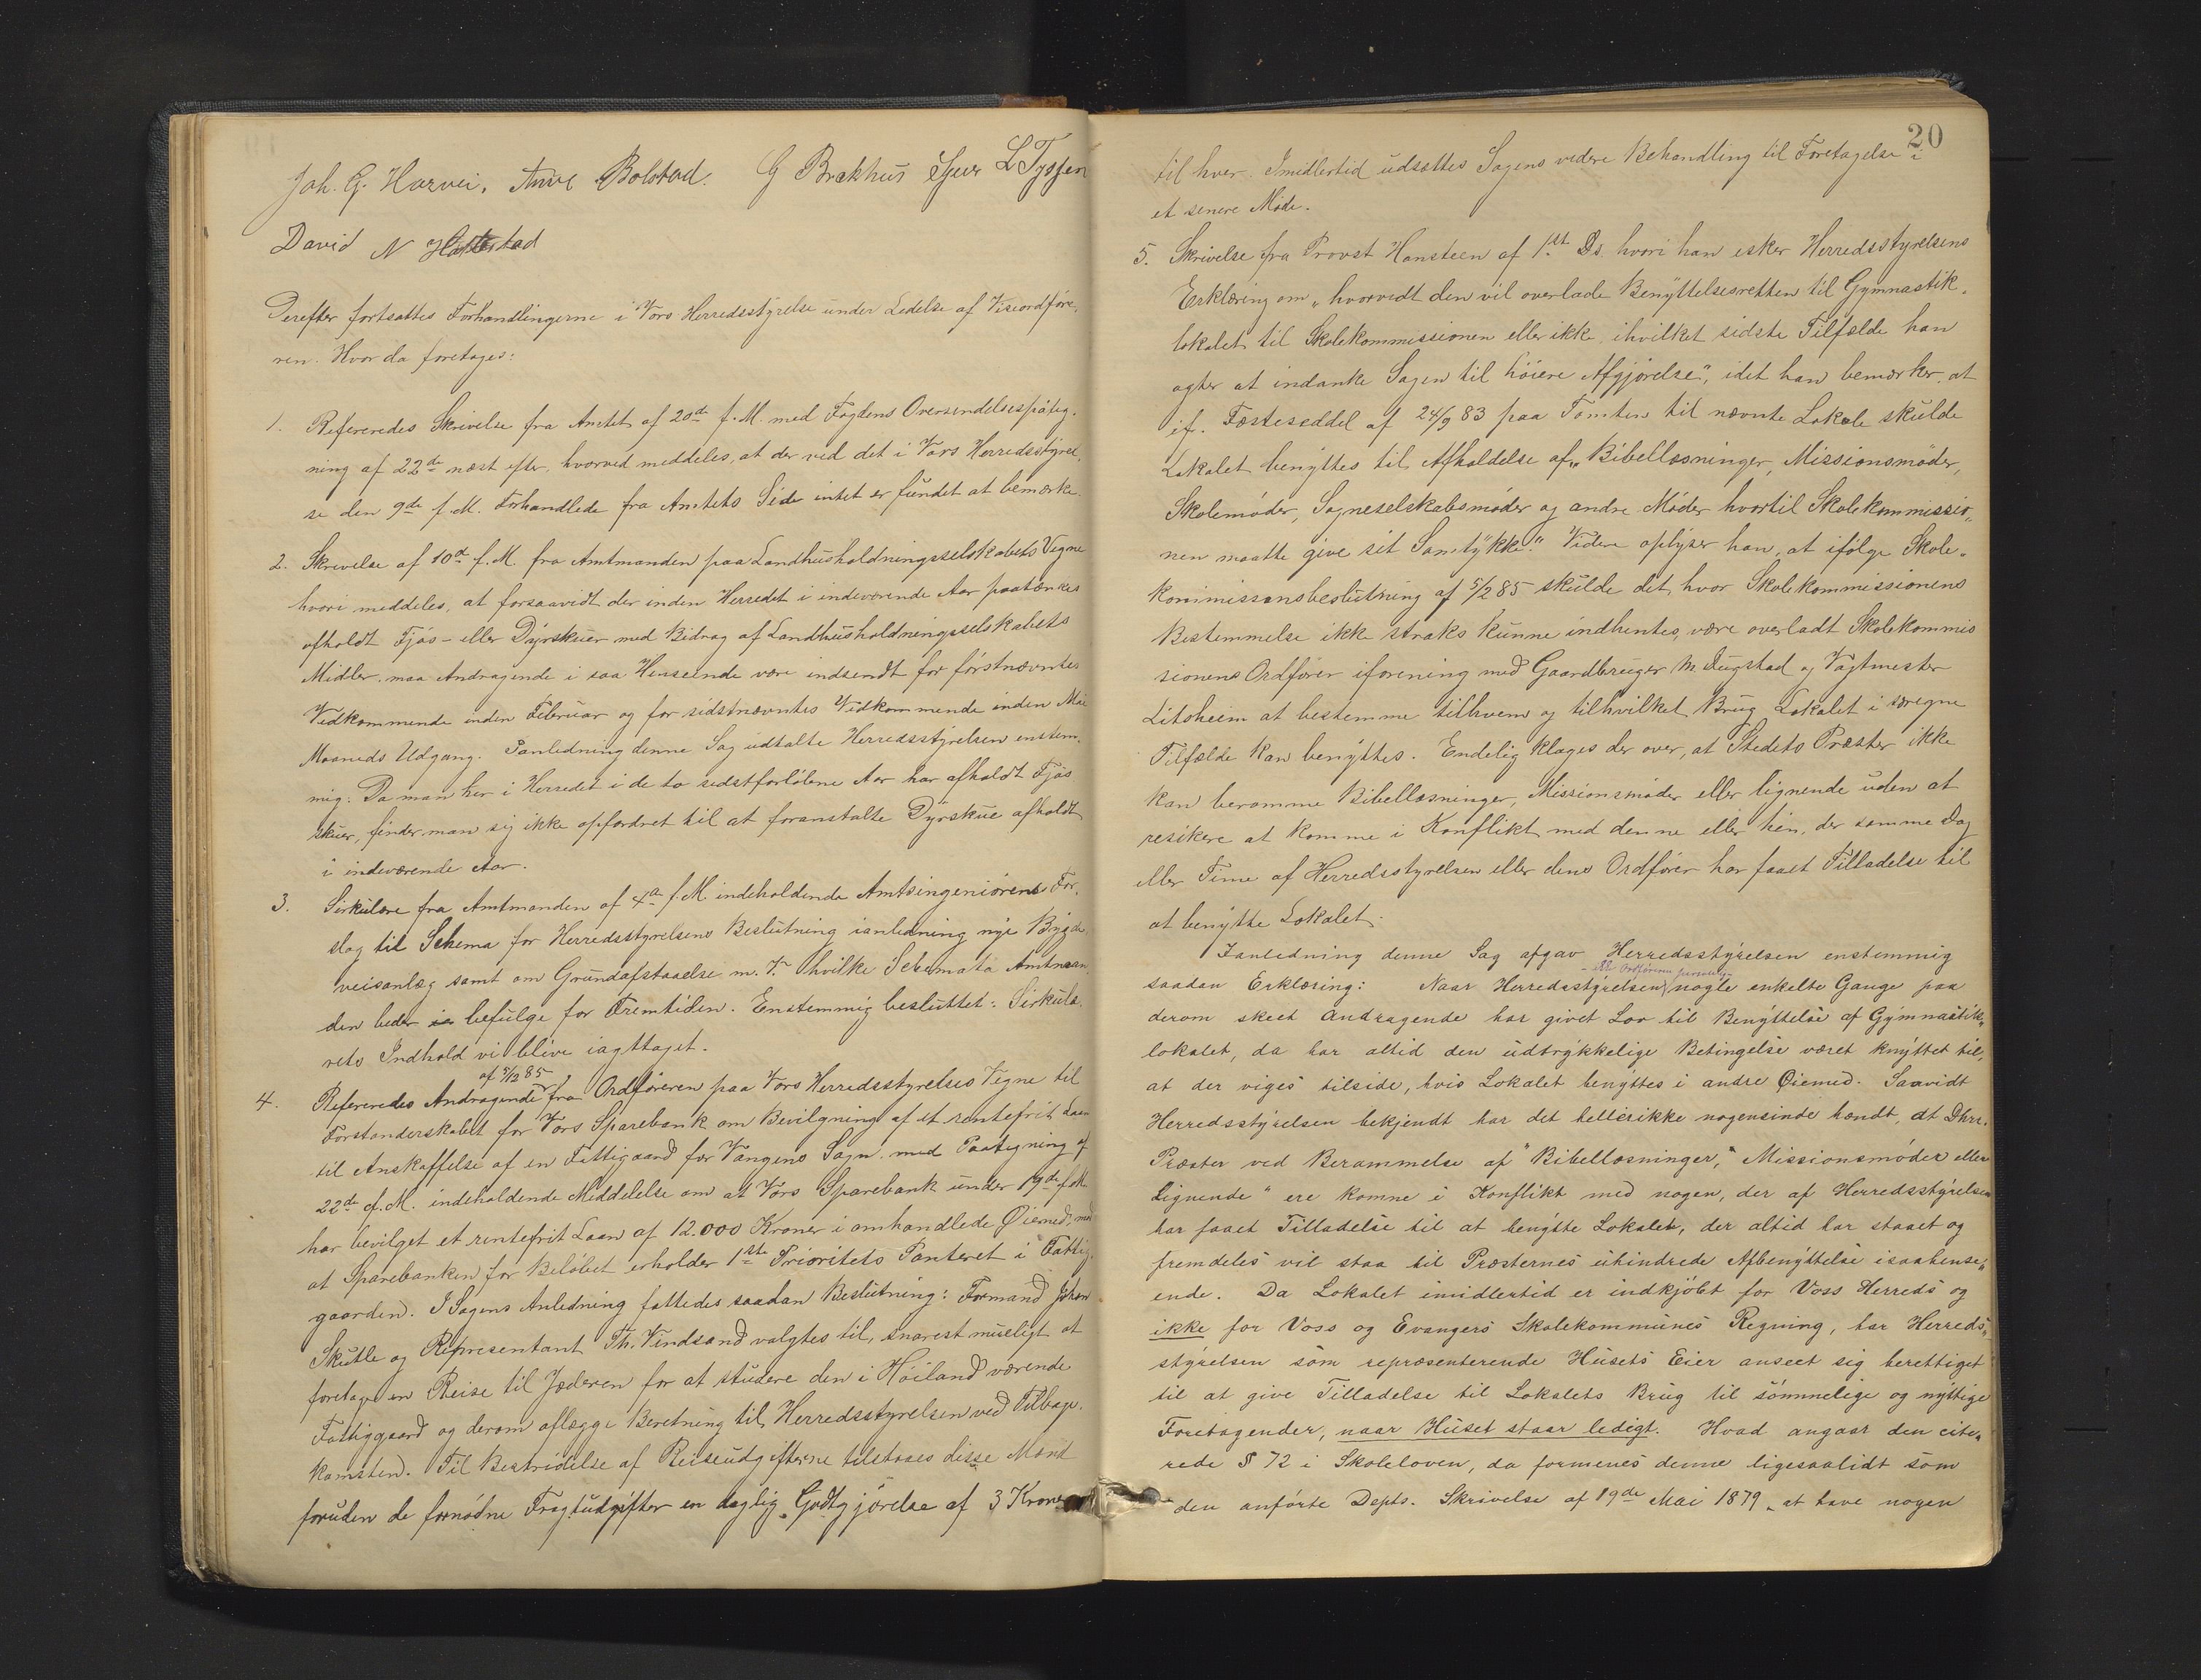 Joh. G. Harvei. Anve Bolstad. G Brækhus Sjur L Tyssen
David N Hattestad
Derefter fortsattes Forhandlingerne i Vors Herredsstyrelse under Ledelse af Viseordføre-
ren. Hvor da foretages:
1. Refereredes Skrivelse fra Amtet af 20de f.M. med Fogdens Oversendelsespåteg-
ning af 22de næst efter, hvorved meddeles, at der ved det i Vors Herredsstyrel-
se den 9de f.M. Forhandlede fra Amtets Side intet er fundet at bemærke.
2. Skrivelse af 10de f.M. fra Amtmanden paa Landhusholdningsselskabets Vegne
hvori meddeles, at forsaavidt der inden Herredet i indeværende Aar paatænkes
afholdt Fjøs- eller Dyrskuer med Bidrag af Landhusholdningsselskabets
Midler, maa Andragende i saa Henseende være indsendt for førstnævntes
Vedkommende inden Februar og for sidstnævntes Vedkommende inden Mai
Maaneds Udgang. I anledning denne Sag udtalte Herredsstyrelsen enstem-
mig: Da man her i Herredet i de to sidstforløbne Aar har afholdt Fjøs
skuer, finder man sig ikke opfordret til at foranstalte Dyrskue afholdt
i indeværende Aar.
3. Sirkulære fra Amtmanden af 4de f.M indeholdende Amtsingeniørens For-
slag til Schema for Herredsstyrelsens Beslutning ianledning nye Bygde-
veisanlæg samt om Grundafstaaelse m. V. hvilke Schemata Amtman
den beder befulge for Fremtiden. Enstemmig besluttet: Sirkulæ-
rets Indhold vi blive iagttaget.
af 3/2 85
4. Refereredes Andragende fra Ordføreren paa Vors Herredsstyrelses Vegne til
Forstanderskabet for Vors Sparebank om Bevilgning af et rentefrit Laan
til Anskaffelse af en Fattiggaard for Vangens Sogn med Paategning af
22de f.M. indeholdende Meddelelse om at Vors Sparebank under 19de f.M.
har bevilget et rentefrit Laan af 12.000 Kroner i omhandlede Øiemed, mod
at Sparebanken for Beløbet erholder 1ste Prioritets Panteret i Fattig-
gaarden. I Sagens Anledning fattedes saadan Beslutning: Formand Johan
Skutle og Representant Th. Vindsand valgtes til, snarest mueligt at
foretage en Reise til Jæderen for at studere den i Høiland værende
Fattiggaard og derom aflægge Beretning til Herredsstyrelsen ved Tilbage-
komsten. Til Bestridelse af Reiseudgifterne tilstaaes disse Mænd
foruden de fornødne Fragtudgifter en daglig Godtgjørelse af 3 Kroner
20
til hver. Imidlertid udsættes Sagens videre Behandling til Foretagelse i
et senere Møde.
5. Skrivelse fra Provst Hansteen af 1ste Ds. hvori han esker Herredsstyrelsens
Erklæring om „hvorvidt den vil overlade Benyttelsesretten til Gymnastik-
lokalet til Skolekommissionen eller ikke, ihvilket sidste Tilfælde han
agter at indanke Sagen til høiere Afgjørelse", idet han bemærker, at
if. Fæsteseddel af 24/9 83 paa Tomten til nævnte Lokale skulde
Lokalet benyttes til Afholdelse af „Bibellæsninger, Missionsmøder,
Skolemøder, Sogneselskabsmøder og andre Møder hvortil Skolekommissio-
nen maatte give sit Samtykke". Videre oplyser han, at ifølge Skole-
kommissionsbeslutning af 5/2 85 skulde det, hvor Skolekommissionens
Bestemmelse ikke straks kunne indhentes, være overladt Skolekommis
sionens Ordfører iforening med Gaardbruger M. Dugstad og Vagtmester
Litsheim at bestemme tilhvem og tilhvilket Brug Lokalet i særegne
Tilfælde kan benyttes. Endelig klages der over, at Stedets Præster ikke
kan beramme Bibellæsninger, Missionsmøder eller lignende uden at
resikere at komme i Konflikt med denne eller hin, der samme Dag
eller Time af Herredsstyrelsen eller dens Ordfører har faaet Tilladelse til
at benytte Lokalet.
Ianledning denne Sag afgav Herredsstyrelsen enstemmig
- ell Ordføreren personlig -
saadan Erklæring: Naar Herredsstyrelsen nogle enkelte Gange paa
derom skeet Andragende har givet Lov til Benyttelse af Gymnastik-
lokalet, da har altid den udtrykkelige Betingelse været knyttet til,
at der viges tilside, hvis Lokalet benyttes i andre Øiemed. Saavidt
Herredsstyrelsen bekjendt har det hellerikke nogensinde hændt, at Dhrr.
Præster ved Berammelse af "Bibellæsninger, Missionsmøder eller
Lignende" ere komne i Konflikt med nogen, der af Herredsstyrelsen
har faaet Tilladelse til at benytte Lokalet, der altid har staaet og
fremdeles vil staa til Præsternes uhindrede Afbenyttelse isaahense-
ende. Da Lokalet imidlertid er indkjøbt for Voss Herreds og
ikke for Voss og Evangers Skolekommunes Regning, har Herreds-
styrelsen som repræsenterende Husets Eier anseet sig berettiget
til at give Tilladelse til Lokalets Brug til sømmelige og nyttige
Foretagender, naar Huset staar ledigt. Hvad angaar den cite-
rede § 72 i Skoleloven, da formenes denne ligesaalidt som
den anførte Depts. Skrivelse af 19de Mai 1879 at have nogen